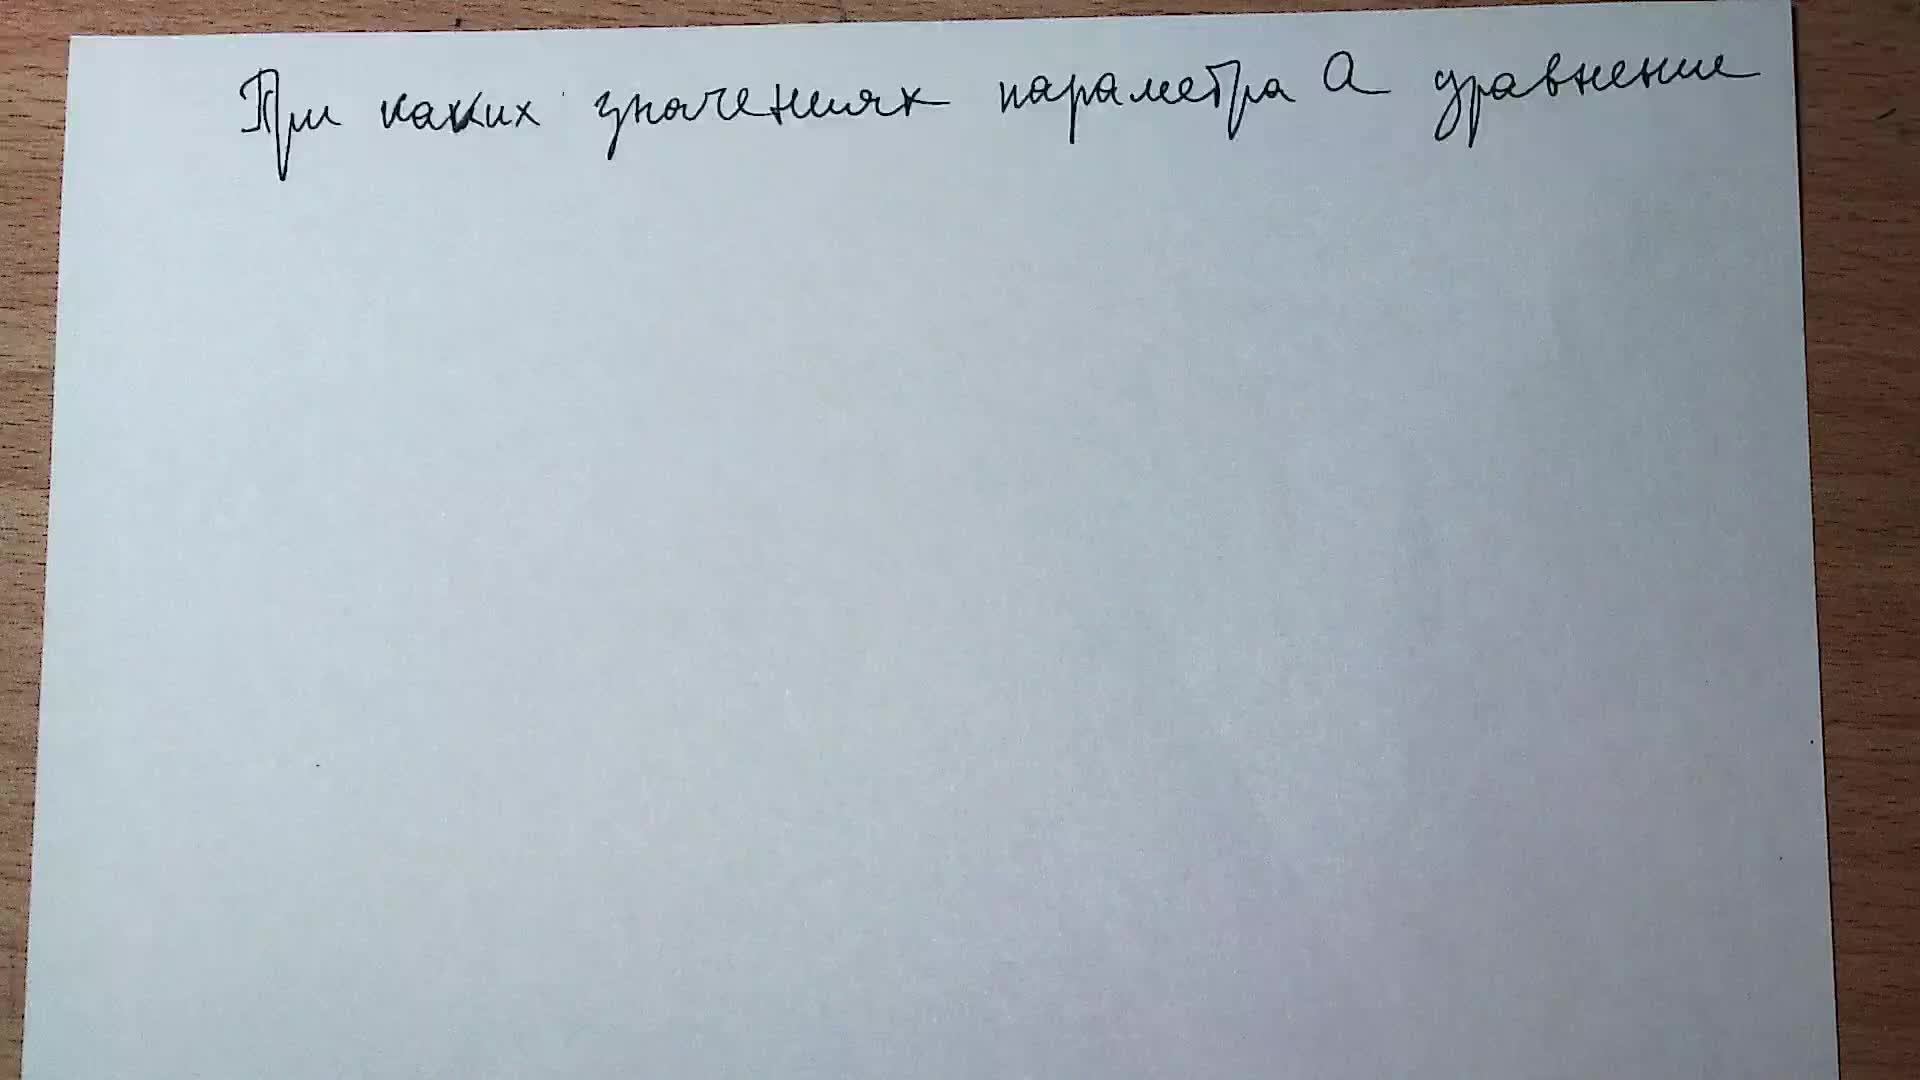 При каких значениях параметра a уравнение